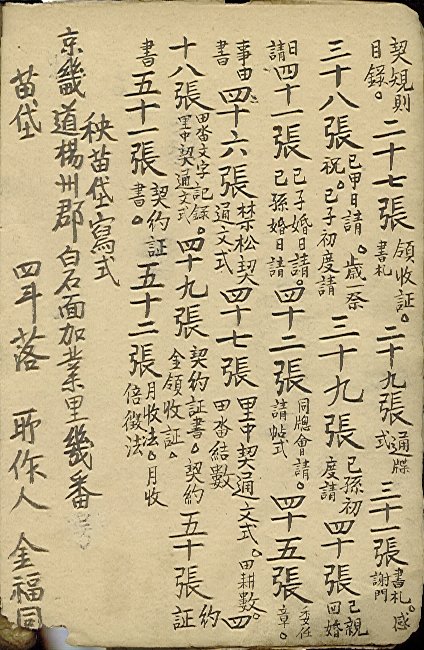 契規則目錄。二十七張領收証。書札二十九張通牒式三十一張書札。感謝門
三十八張己甲日請。歲一奈祝。己子初度請三十九張己孫初度請四十張己親回婚
日請四十一張己子婚日請。己孫婚日請四十二張同牌會請。請帖式四十五張委任章。
事由書四十六張禁松契通文式四十七張里中契通文式。田耕數。田畓結數四
十八張田畓文字記錄。里中契通文式四十九張契約証書。契約金領收証。五十張契約証
書五十一張契約証書。五十二張月收法。月收倍徵法
秧苗岱寫式
京畿道楊州郡白石面加業里幾番
苗岱 四斗落 所作人 金福同